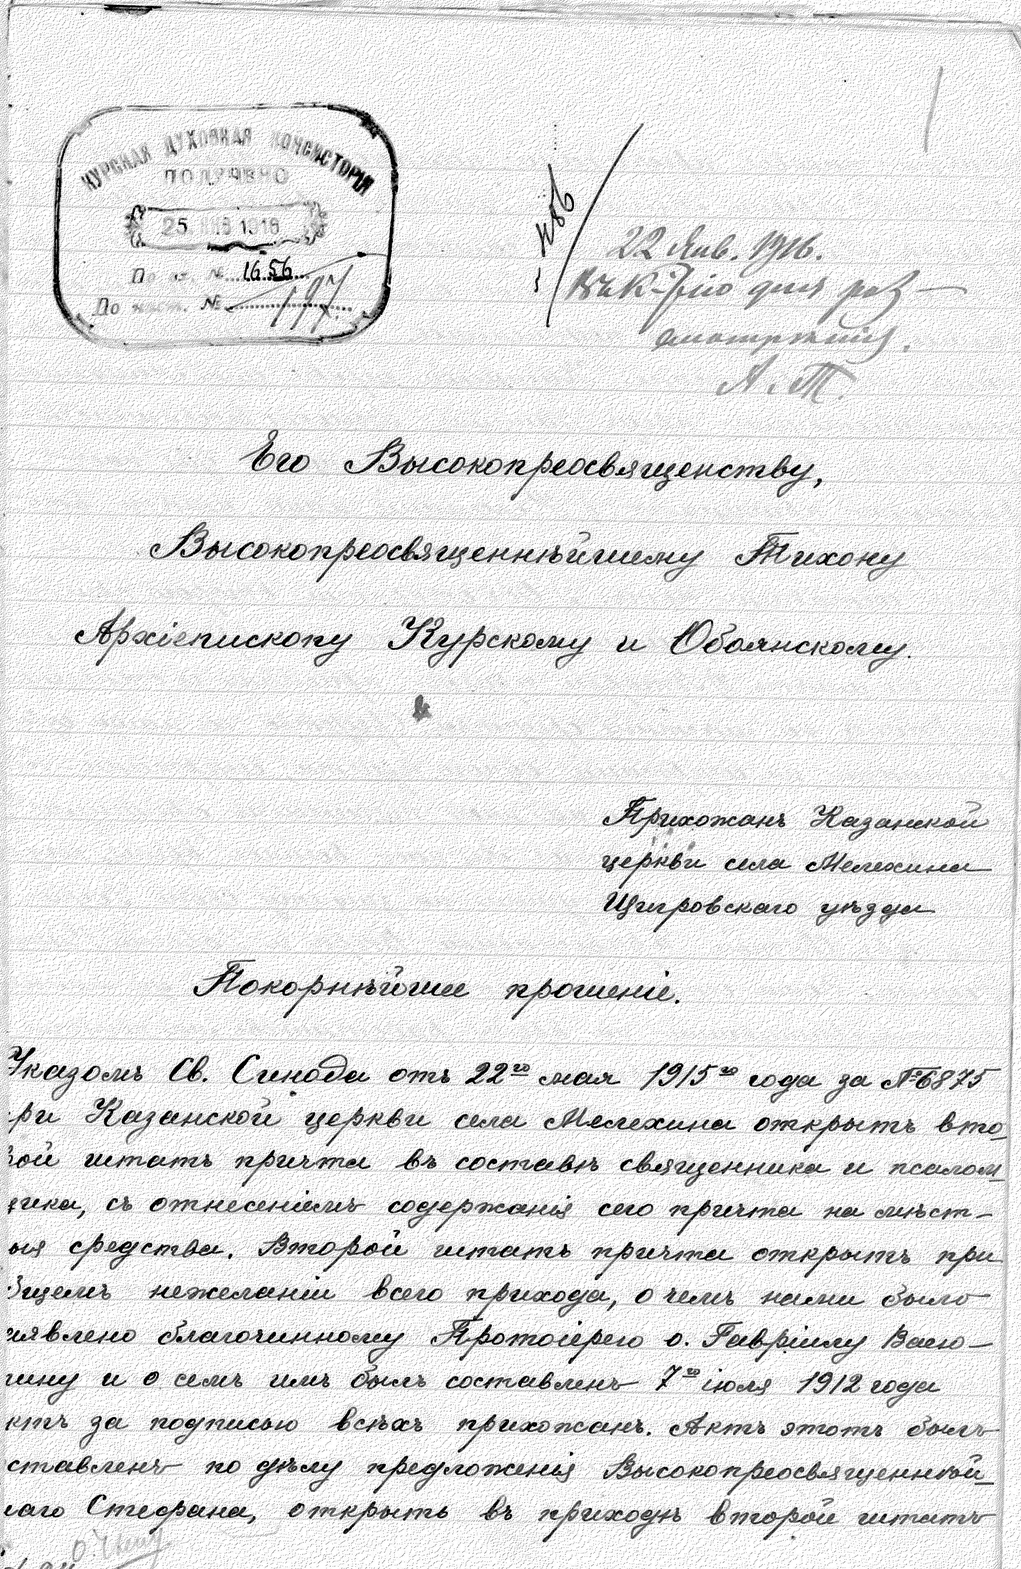 КУРСКАЯ ДУХОВНАЯ КОНСИСТОРІЯ
ПОДАНО
25 ЯНВ 1916
По вх. № 1656
До наст. №
1
22 Янв. 1916.
для раз-
смотрѣнія.
А. Т.
Его Высокопреосвященству,
Высокопреосвященнѣйшему Тихону
Архіепископу Курскому и Обоянскому.
Прихожанъ Казанской
церкви села Мелехина
Щигровскаго уѣзда
Покорнѣйшее прошеніе.
Указомъ Св. Синода отъ 22го мая 1915го года за № 6875
ри Казанской церкви села Мелехина открытъ вто-
рой штатъ причта въ составѣ священника и псалом-
щика, съ отнесеніемъ содержанія сего причта на мѣст-
ыя средства. Второй штатъ причта открытъ при
бщемъ нежеланіи всего прихода, о чемъ нами было
аявлено благочинному Протоіерею о. Гавріилу Васю-
тину и о семъ имъ былъ составленъ 7го іюля 1912 года
ктъ за подписью всѣхъ прихожанъ. Актъ этотъ былъ
ставленъ по дѣлу предложенія Высокопреосвященнѣй-
шаго Стефана, открыть въ приходѣ второй штатъ